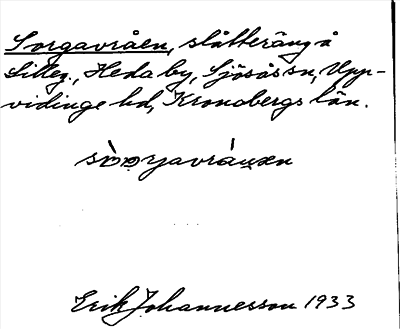 Sorgavråen, slåtteräng å
Lilleg., Hedaby, Sjösås sn, Upp-
vidinge hd, Kronobergs län.
Erik Johannesson 1933